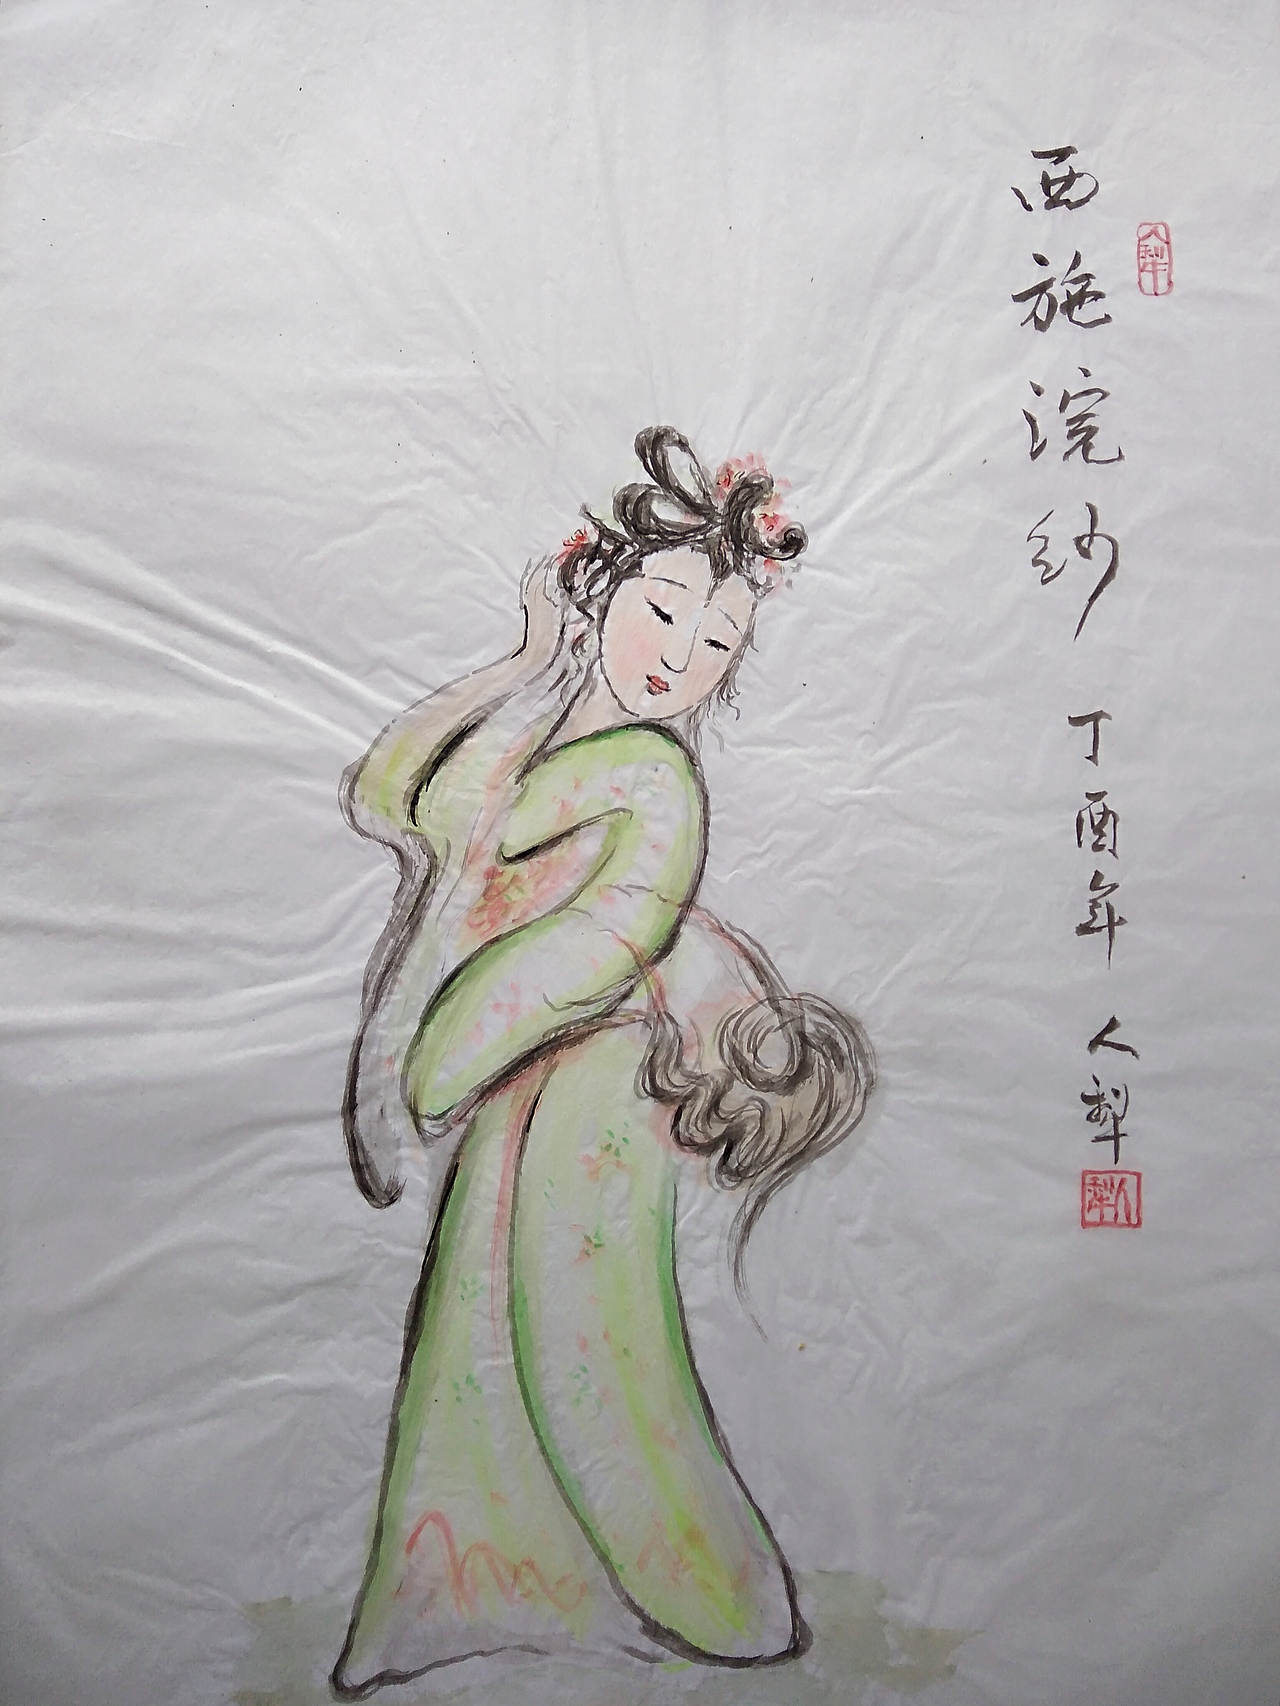 人犁
西施浣纱 丁酉年 人犁
人犁